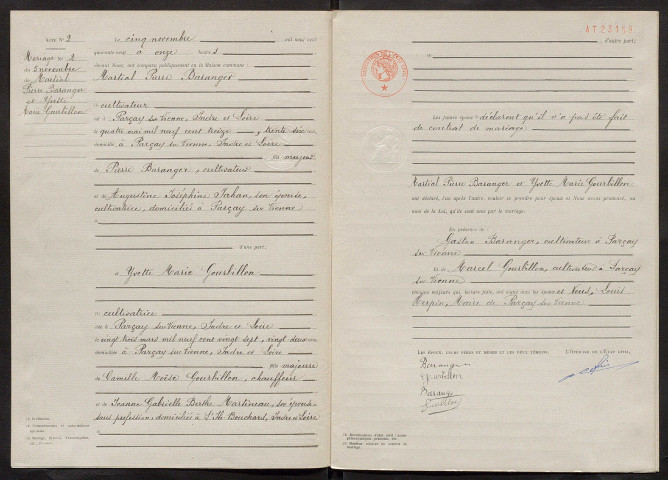 Acte N° 2
Mariage N° 2
du 5 novembre
de Martial
Pierre Baranger
et Yvette
Marie Gourbillon
Le cinq novembre mil neuf cent
quarante neuf à onze heures
devant Nous, ont comparu publiquement en la Maison commune :
Martial Pierre Baranger
cultivateur
né à Parçay sur Vienne, Indre et Loire
le quatre mai mil neuf cent treize, trente six ans,
domicilié à Parçay sur Vienne, Indre et Loire
fils majeur
de Pierre Baranger, cultivateur
et de Augustine Joséphine Jahan, son épouse,
cultivatrice, domiciliés à Parçay sur Vienne
d'une part,
et Yvette Marie Gourbillon
cultivatrice
née à Parçay sur Vienne, Indre et Loire
le vingt trois mars mil neuf cent vingt sept, vingt deux ans
domiciliée à Parçay sur Vienne, Indre et Loire
fille majeure
de Camille Moïse Gourbillon, chauffeur
et de Jeanne Gabrielle Berthe Martineau, son épouse
sans profession, domiciliés à L'Ile Bouchard, Indre et Loire
AT.23159
d'autre part;
Les futurs époux déclarent qu'il n'a pas été fait
de contrat de mariage
Martial Pierre Baranger et Yvette Marie Gourbillon
ont déclaré, l'un après l'autre, vouloir se prendre pour époux et Nous avons prononcé, au
nom de la Loi, qu'ils sont unis par le mariage.
En présence de
Gaston Baranger, cultivateur à Parçay
sur Vienne
et de Marcel Gourbillon, cultivateur à Parçay
sur Vienne
témoins majeurs qui, lecture faite, ont signé avec les époux et Nous, Louis
Maire de Parçay sur Vienne
LES ÉPOUX, LEURS PÈRES ET MÈRES ET LES DEUX TÉMOINS,
L'OFFICIER DE L'ÉTAT CIVIL,
Baranger
Gourbillon
Baranger
Gourbillon